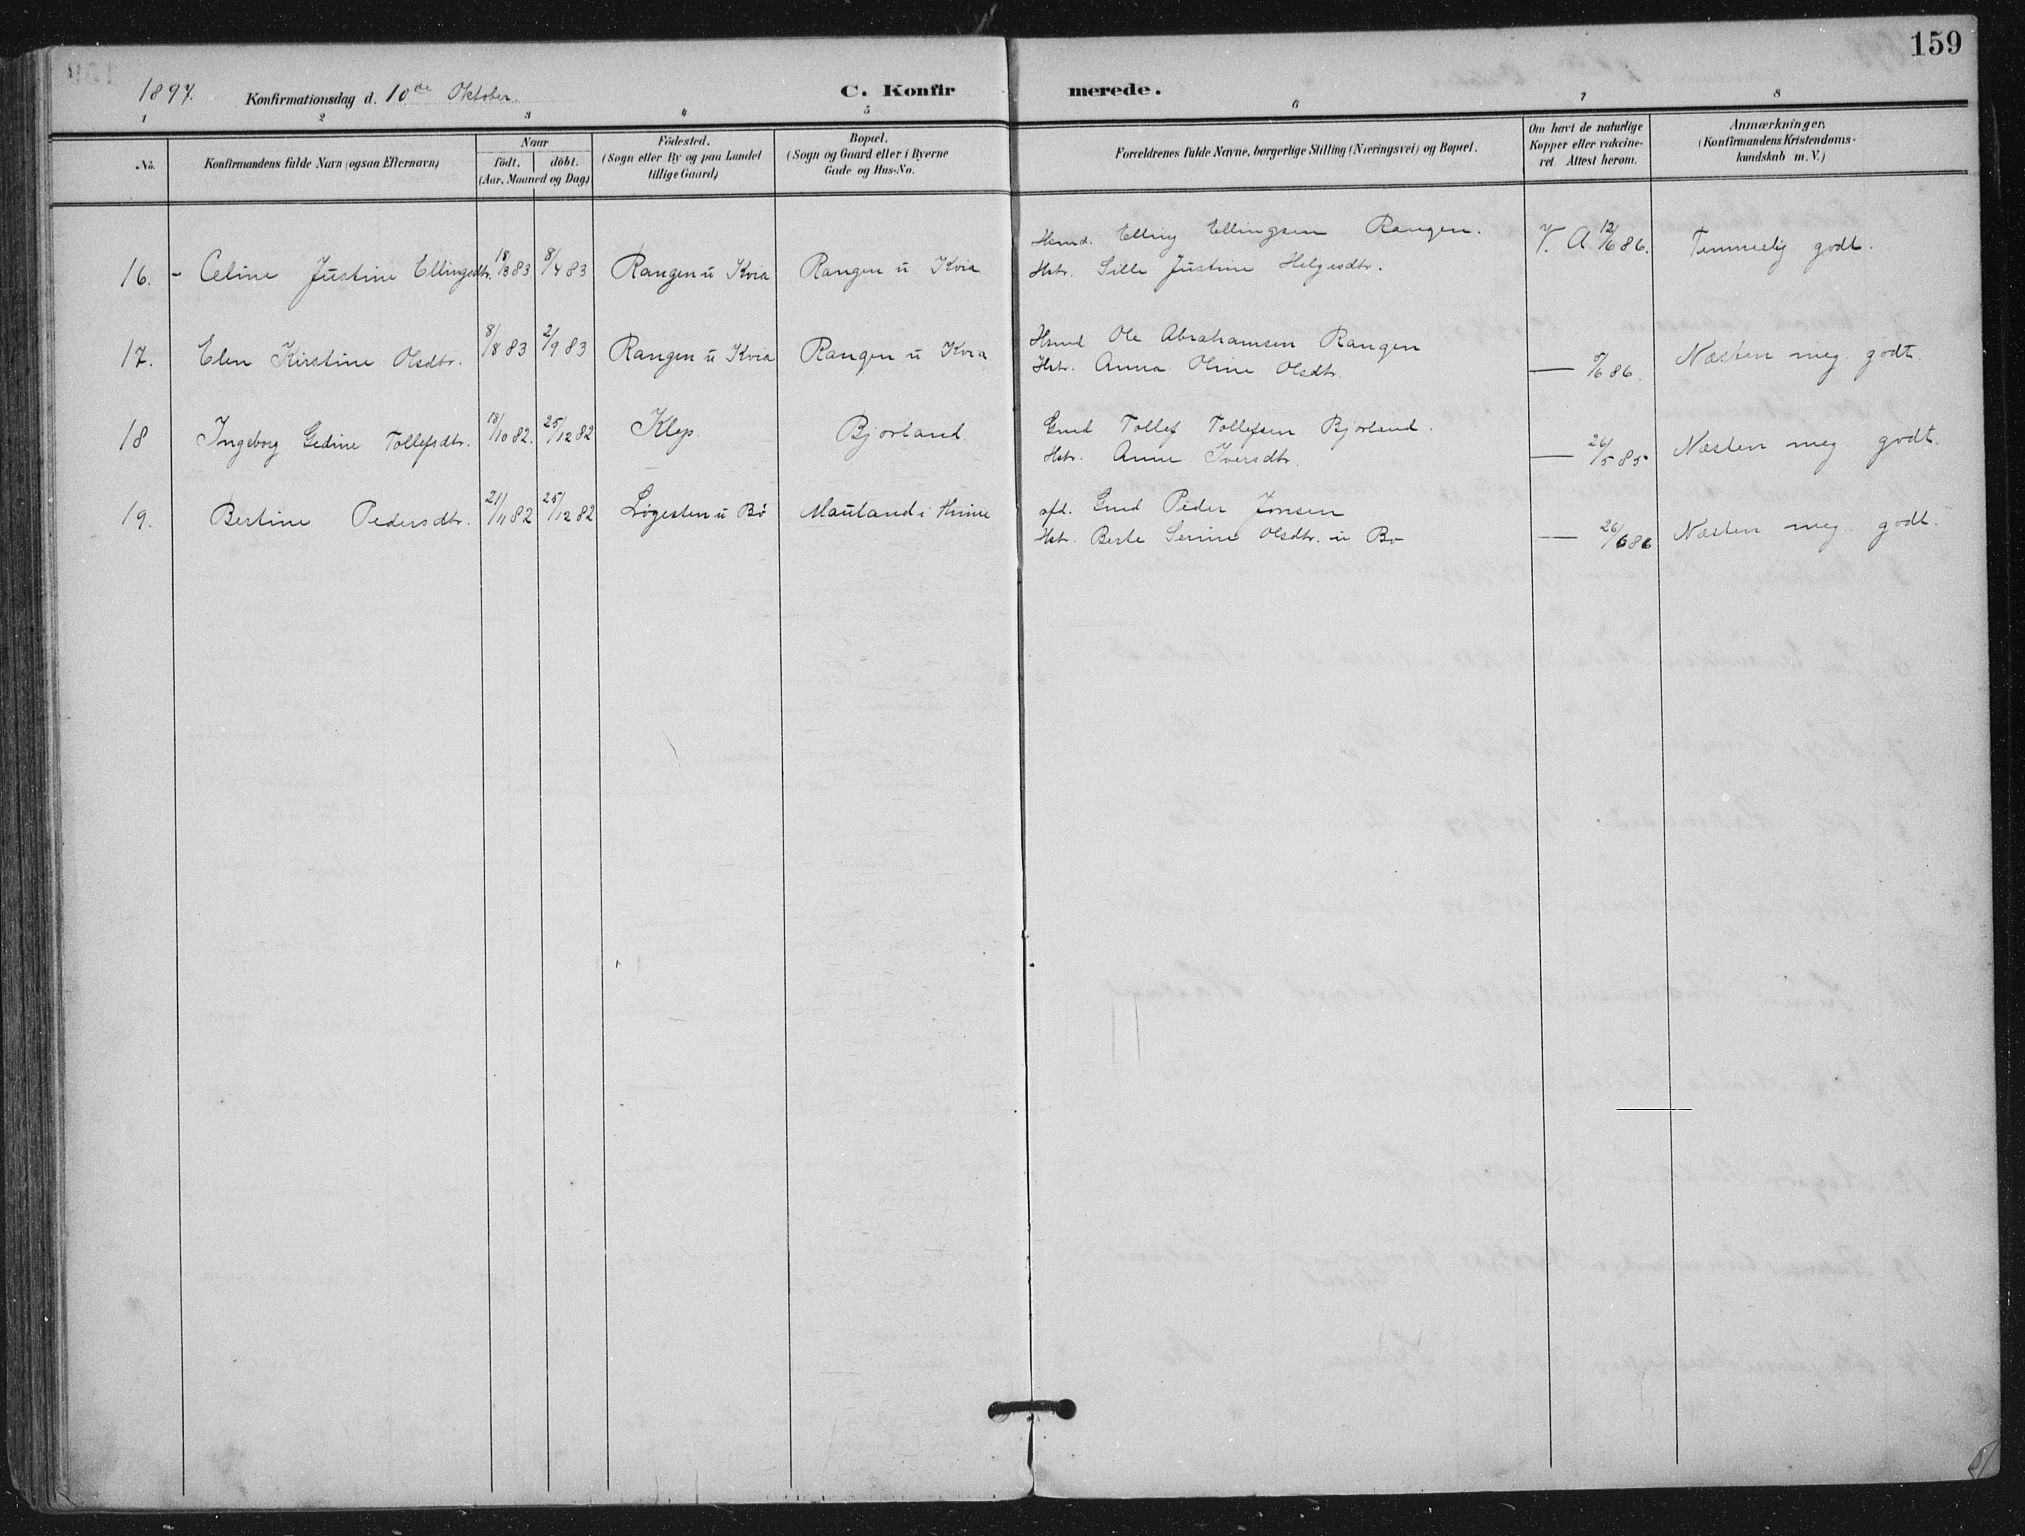 159
1897. Konfirmationsdag d. 10de Oktober. C. Konfirmerede.
1 2 3 4 5 6 7 8
No. Konfirmandens fulde Navn (ogsaa Efternavn) Naar födt. döbt. (Aar, Maaned og Dag) Födested. (Sogn eller By og paa Landet tillige Gaard) Bopæl. (Sogn og Gaard eller i Byerne Gade og Hus-No. Forældrenes fulde Navne, borgerlige Stilling (Næringsvei) og Bopæl. Om havt de naturlige Kopper eller vakcineret. Attest herom. Anmærkninger, (Konfirmandens Kristendomskundskab m. V.)
16. - Celine Justine Ellingsdtr. 18/3 83 8/4 83 Rangen u Kvia Rangen u Kvia Hsmd. Elling Ellingsen Rangen. V. A. 12/6 86. Temmelig godt.
Hstr. Sille Justine Helgesdtr.
17. Elen Kirstine Olsdtr. 8/8 83 2/9 83 Rangen u Kvia Rangen u Kvia Hsmd Ole Abrahamsen Rangen
Hstr. Anna Oline Olsdtr. — /6 86. Næsten meg. godt.
18 Ingeborg Gedine Tollefsdtr. 18/10 82. 25/12 82 Klep Bjorland. Gmd Tollef Tollefsen Bjorland.
Hstr. Anne Iversdtr. — 26/5 85 Næsten meg godt.
19. Bertine Pedersdtr. 21/11 82 25/12 82 Løgesten u Bø Mauland i Hinne afd. Gmd Peder Jonsen
Hstr. Berte Serine Olsdtr. u Bø — 26/6 86 Næsten meg. godt.